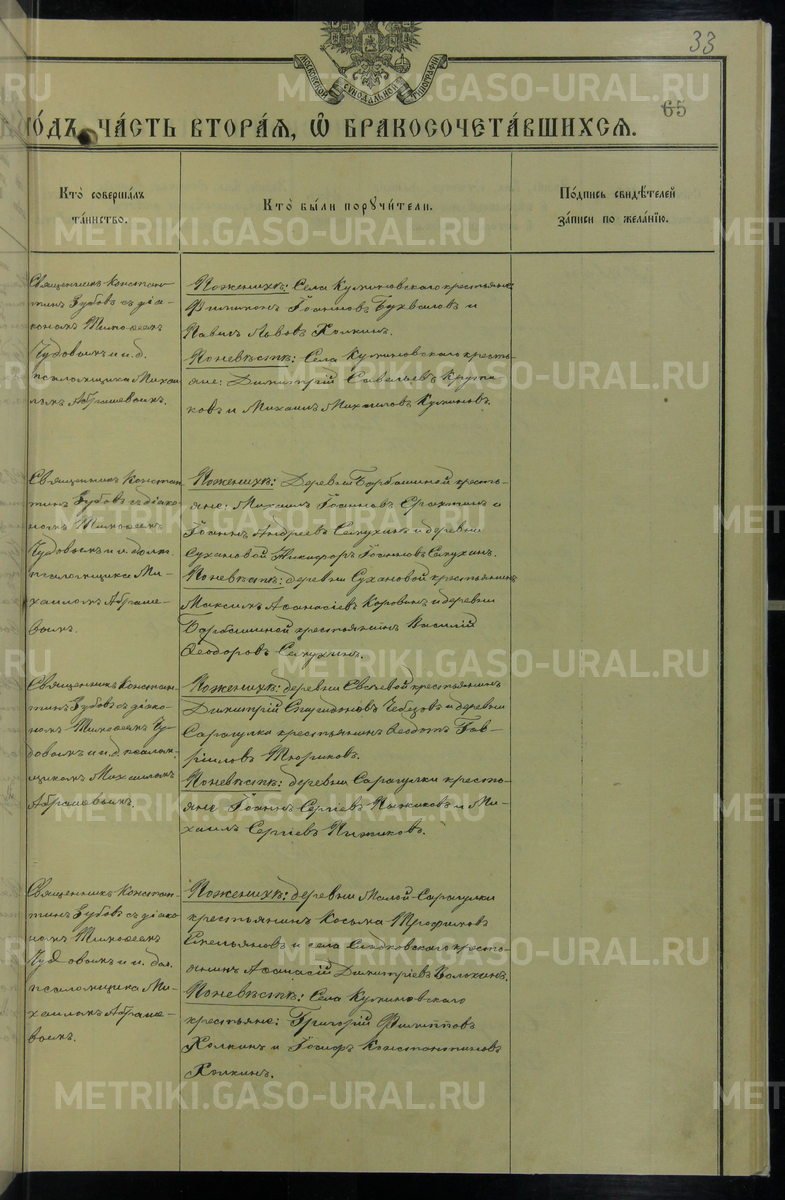 33
МОСКОВСКОЙ СѴНОДАЛЬНОЙ ТИПОГРАФІИ
65
ГО́ДЪ, ЧА́СТЬ ВТОРА́Я, Ѡ҆ БРАКОСОЧЕТА́ВШИХСЯ.
Кто̀ соверша́лъ
та́инство.
Кто̀ бы́ли порꙋчи́тели.
По́дпись свидѣ́телей
за́писи по жела́нїю.
Священникъ Констан-
тинъ Зубовъ съ діа-
кономъ Тимоѳеемъ
Чудовымъ и и. д.
псаломщика Михаи-
ломъ Абрашевымъ.
По женихѣ: Села Кулиновскаго крестьяне:
Филимонъ Іоанновъ Бухваловъ и
Павелъ Львовъ Холкинъ.
По невѣстѣ: Села Кулиновскаго кресть-
яне: Димитрій Савельевъ
и Михаилъ Михаиловъ
Священникъ Констан-
тинъ Зубовъ съ діако-
номъ Тимоѳеемъ
Чудовымъ и и. долж.
псаломщика Ми-
хаиломъ Абраше-
вымъ.
По женихѣ: Деревни Барбашиной кресть-
яне: Михаилъ Іоанновъ и
Іоаннъ Андреевъ Секухинъ и деревни
Сухановой Никифоръ Іоанновъ Секухинъ.
По невѣстѣ: деревни Сухановой крестьянинъ
Максимъ Аѳанасіевъ Коровинъ и деревни
Барбашиной крестьянинъ Василій
Ѳеодоровъ Секухинъ.
Священникъ Констан-
тинъ Зубовъ съ діако-
номъ Тимоѳеемъ Чу-
довымъ и и. д. псалом-
щикомъ Михаиломъ
Абрашевымъ.
По женихѣ: деревни крестьянинъ
Димитрій Спиридоновъ и деревни
Сарагулки крестьянинъ Ѳедотъ Гав-
ріиловъ Тюриковъ.
По невѣстѣ: деревни Сарагулки кресть-
яне Іоаннъ Сергіевъ Пыжиковъ и Ми-
хаилъ Сергіевъ Пыжиковъ.
Священникъ Констан-
тинъ Зубовъ съ діако-
номъ Тимоѳеемъ
Чудовымъ и и. дол.
псаломщика Ми-
хаиломъ Абраше-
вымъ.
По женихѣ: деревни Малой-Сарагулки
крестьянинъ Косьма Трофимовъ
Емельяновъ и села Сладковскаго кресть-
янинъ Аѳанасій Димитріевъ Волохинъ.
По невѣстѣ: Села Кулиновскаго
крестьяне: Григорій Филипповъ
Холкинъ и Іосифъ Константиновъ
Холкинъ.
METRIKI.GASO-URAL.RU